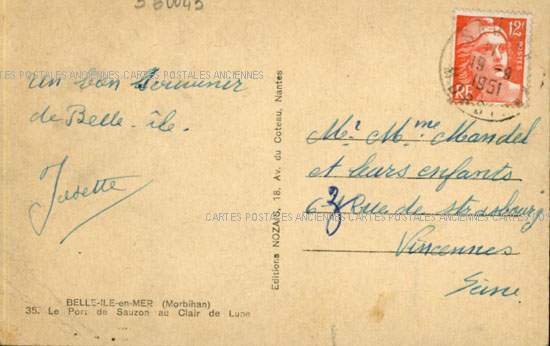 3 60045
12F
POSTES
RF
19 -9
1951
CARTES POSTALES ANCIENNES CARTES POSTALES ANCIENNES
un bon souvenir
de Belle-île.
Josette
Editions NOZAIS, 18, Av. du Coteau, Nantes
Mr Mme Mandel
et leurs enfants
63 Rue de strasbourg
Vincennes
Seine
CARTES POSTALES ANCIENNES CARTES POSTALES ANCIENNES
BELLE-ILE-en-MER (Morbihan)
35. Le Port de Sauzon au Clair de Lune